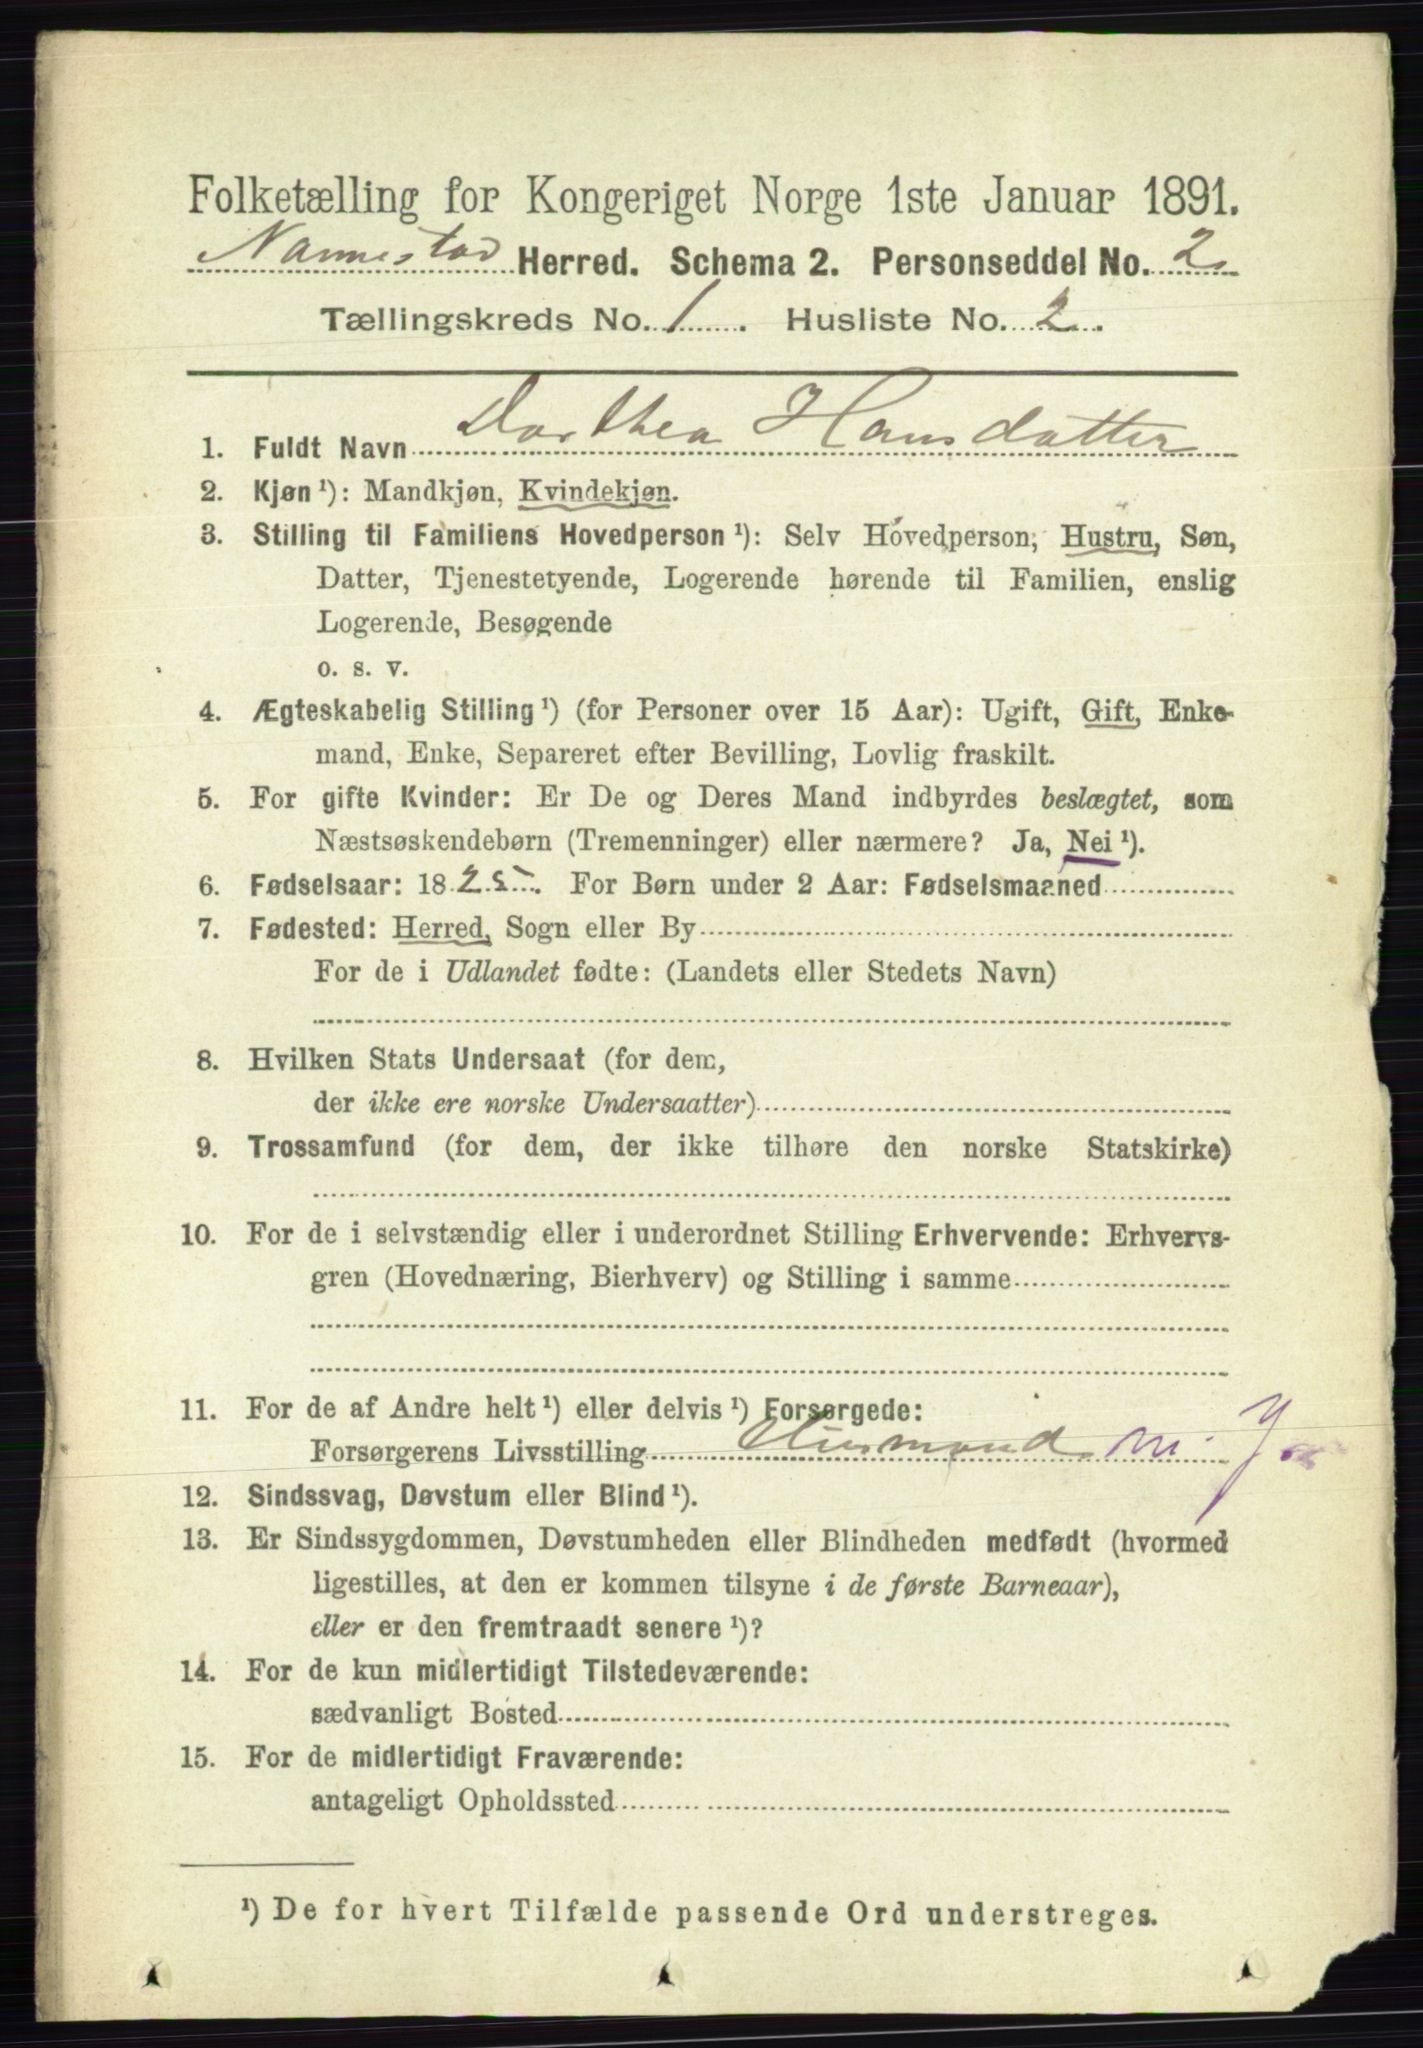 Folketælling for Kongeriget Norge 1ste Januar 1891.
Nannestad Herred. Schema 2. Personseddel No. 2
Tællingskreds No. 1. Husliste No. 2.
1. Fuldt Navn Dorthea Hansdatter
2. Kjøn ¹): Mandkjøn, Kvindekjøn.
3. Stilling til Familiens Hovedperson ¹): Selv Hovedperson, Hustru, Søn,
Datter, Tjenestetyende, Logerende hørende til Familien, enslig
Logerende, Besøgende
o. s. v.
4. Ægteskabelig Stilling ¹) (for Personer over 15 Aar): Ugift, Gift, Enke-
mand, Enke, Separeret efter Bevilling, Lovlig fraskilt.
5. For gifte Kvinder: Er De og Deres Mand indbyrdes beslægtet, som
Næstsøskendebørn (Tremenninger) eller nærmere? Ja, Nei ¹).
6. Fødselsaar: 1825. For Børn under 2 Aar: Fødselsmaaned
7. Fødested: Herred, Sogn eller By
For de i Udlandet fødte: (Landets eller Stedets Navn)
8. Hvilken Stats Undersaat (for dem,
der ikke ere norske Undersaatter)
9. Trossamfund (for dem, der ikke tilhøre den norske Statskirke)
10. For de i selvstændig eller i underordnet Stilling Erhvervende: Erhvervs-
gren (Hovednæring, Bierhverv) og Stilling i samme
11. For de af Andre helt ¹) eller delvis ¹) Forsørgede:
Forsørgerens Livsstilling Husmand m. J
12. Sindssvag, Døvstum eller Blind ¹).
13. Er Sindssygdommen, Døvstumheden eller Blindheden medfødt (hvormed
ligestilles, at den er kommen tilsyne i de første Barneaar),
eller er den fremtraadt senere ¹)?
14. For de kun midlertidigt Tilstedeværende:
sædvanligt Bosted
15. For de midlertidigt Fraværende:
antageligt Opholdssted
¹) De for hvert Tilfælde passende Ord understreges.